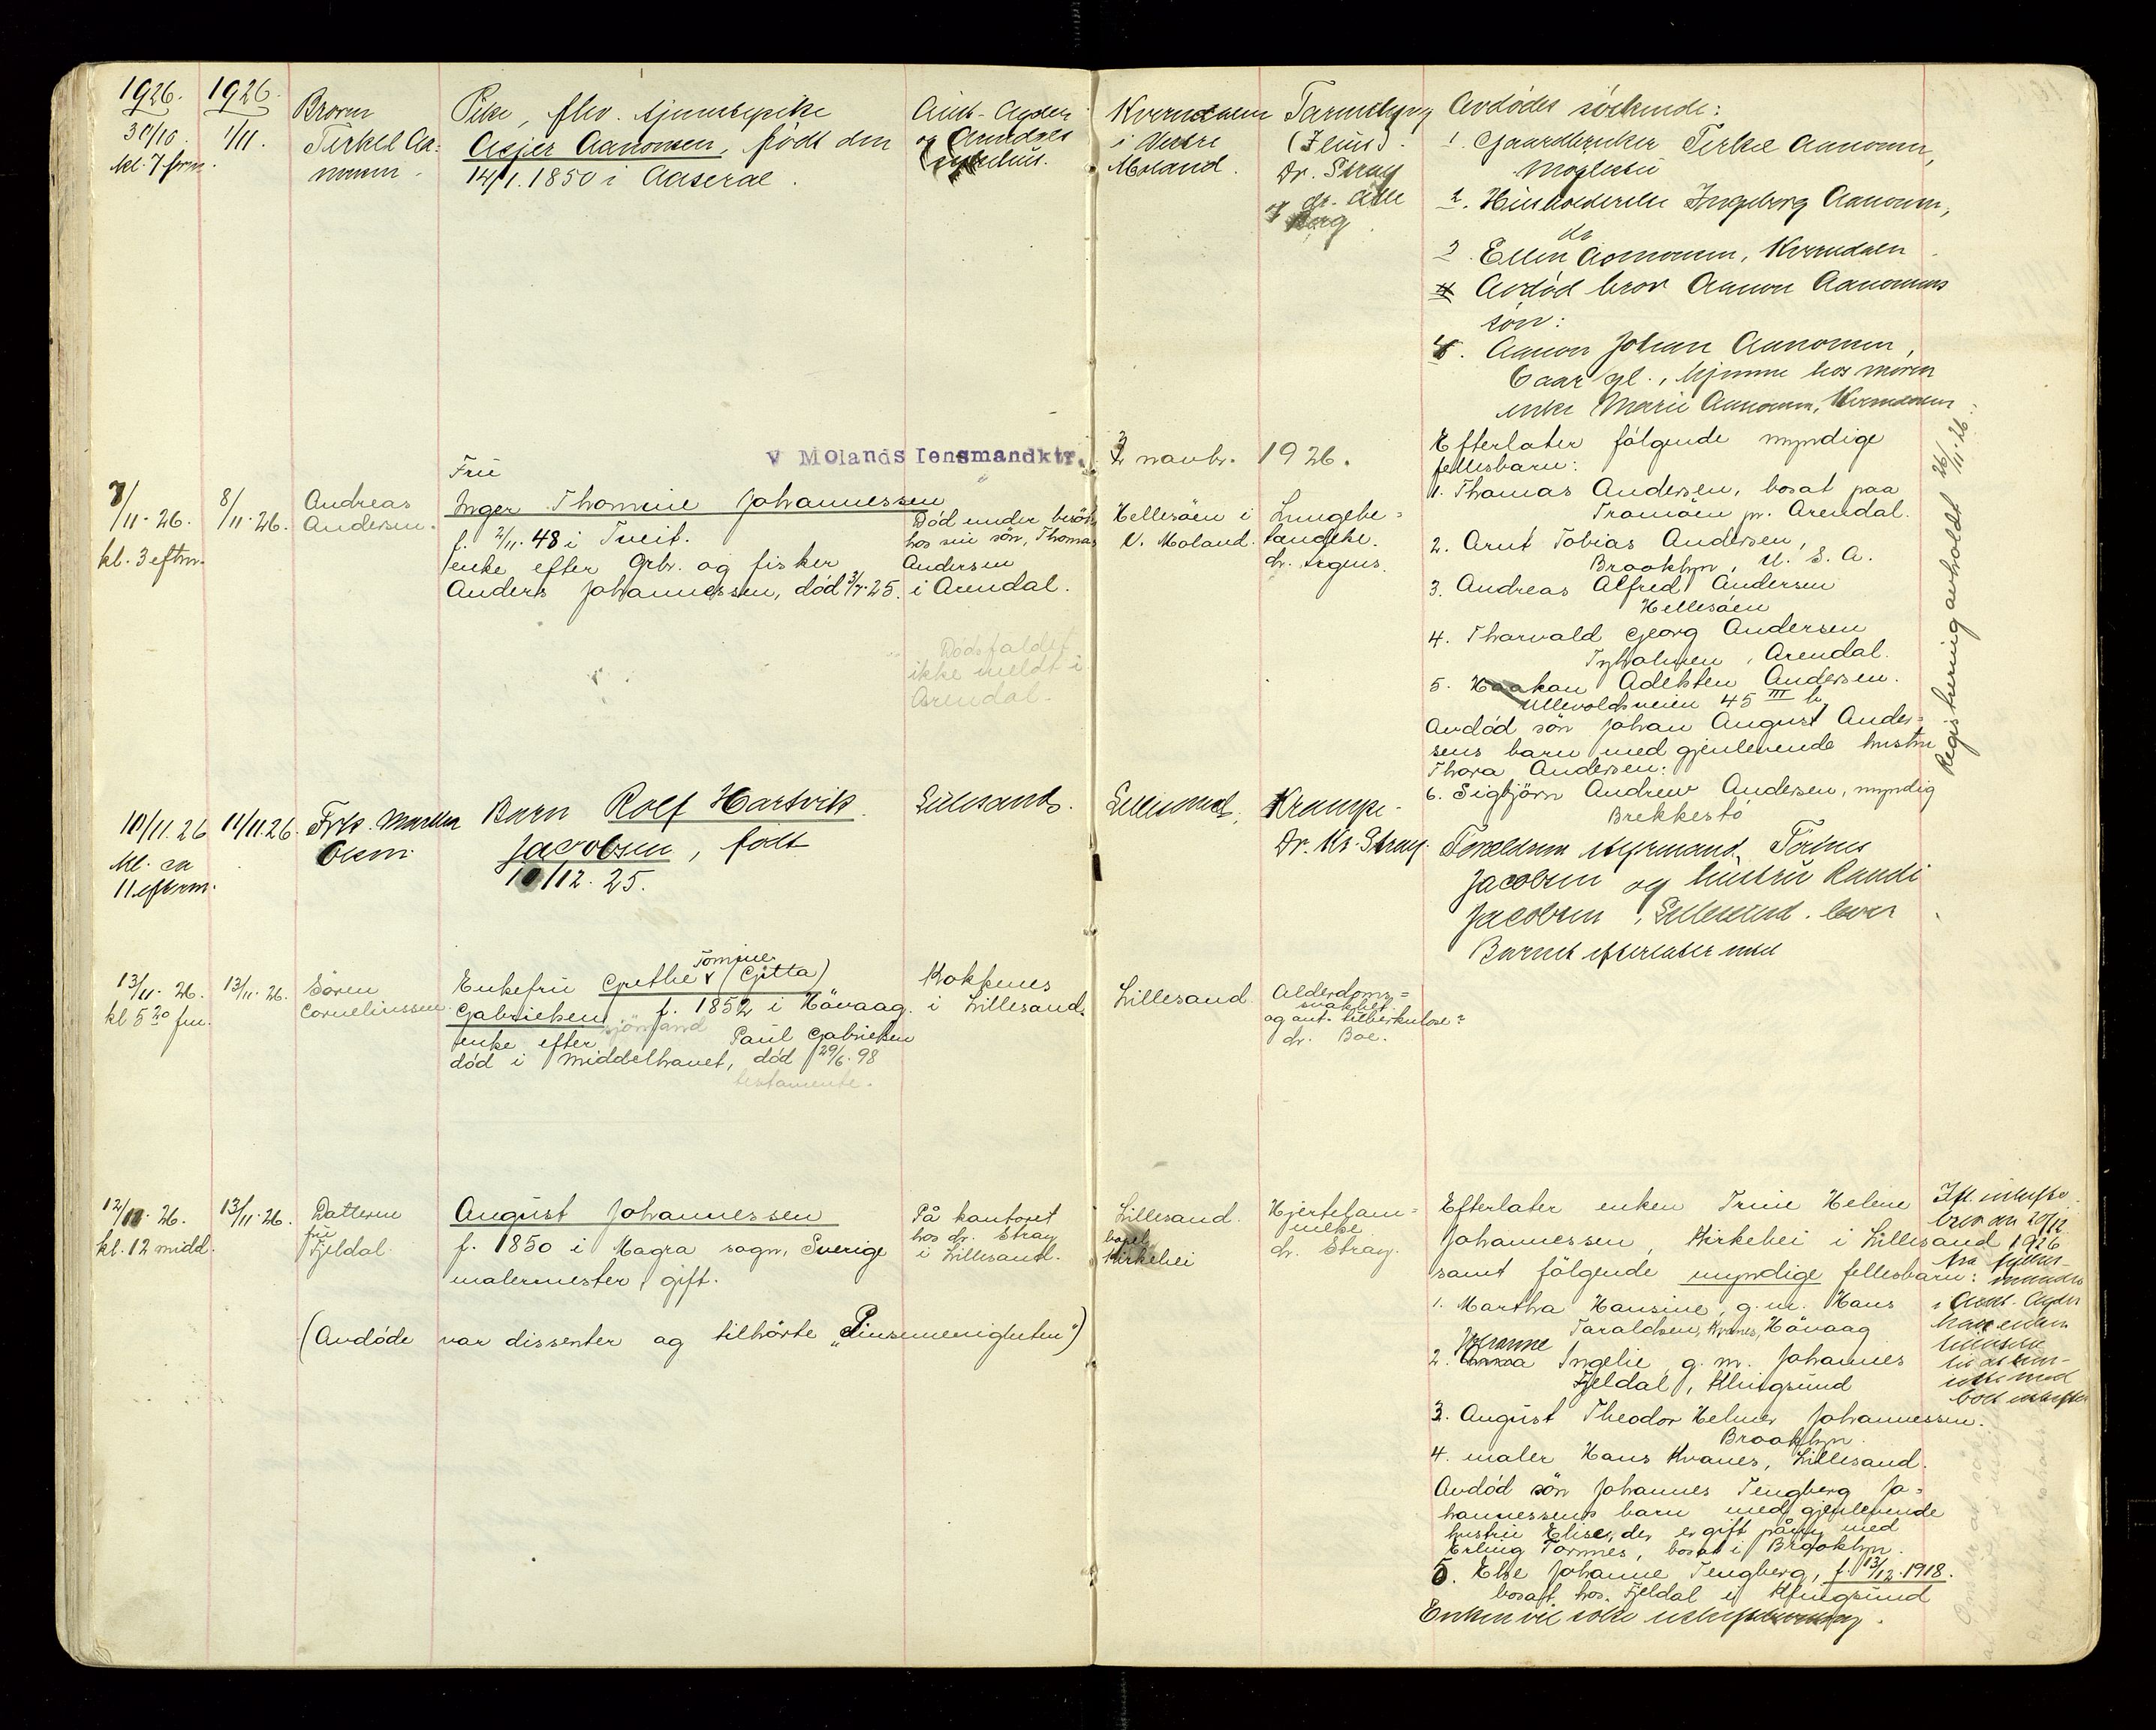 1926.
30/10.
kl. 7 form.
1926.
1/11.
Broren
Terkel Aa:
nonsen.
Pike, fhv. tjenestepike
Asjer Aanonsen, född den
14/1. 1850 i Aaseral.
Aust-Agder
og Arendals
sykehus.
Kverndalen
i Vestre
Moland.
Tarmslyng
(Ileus).
Dr. Stray
og dr.
Avdödes söskende:
1. Gaardbruker Terkel Aanonsen,
2. Husholderske Ingeborg Aanonsen,
do
3. Ellen Aanonsen, Kverndalen
4 Avdöd bror Aanon Aanonsens
sön:
4. Aanon Johan Aanonsen,
6 aar gl., hjemme hos moren
enke Marie Aanonsen, Kverndalen
V Molands lensmandktr. 2 novbr. 1926.
7/11-26.
kl. 3 eftm.
8/11-26.
Andreas
Andersen.
Fru
Inger Thomine Johannessen
f. 2/11.48 i Tveit.
enke efter Grbr. og fisker
Anders Johannessen, död 3/7.25.
Död under besök
hos sin sön, Thomas
Andersen
i Arendal.
Dödsfaldet
ikke meldt i
Arendal.
Hellesöen i
V. Moland.
Lungebe=
tændelse.
dr. Sigurs.
Efterlater fölgende myndige
fellesbarn:
1. Thomas Andersen, bosat paa
Tromöen pr. Arendal.
2. Arnt Tobias Andersen,
Brooklyn, U. S. A.
3. Andreas Alfred Andersen
Hellesöen
4. Thorvald Georg Andersen
Tyholmen, Arendal.
5. Haakon Adelsten Andersen.
Ullevoldsveien 45 III h.
Avdöd sön Johan August Ander=
sens barn med gjenlevende hustru
Thora Andersen:
6. Sigbjörn Andrew Andersen, myndig
Brekkestö
Registrering avholdt 26/11.26.
10/11.26
kl. ca
11 efterm.
11/11.26.
Frk. Martha
Olsen.
Barn Rolf Hartvik
Jacobsen, född
10/12.25.
Lillesand.
Lillesand.
Krampe.
Dr. Kr. Stray.
Foreldrene styrmand Torines
Jacobsen og hustru Randi
Jacobsen, Lillesand. lever
Barnet efterlater intet
13/11.26.
kl 5 20 fm.
13/11.26.
Sören
Corneliussen.
Enkefru Grethe Tomine (Gitta)
Gabrielsen f. 1852 i Hövaag.
enke efter sjömand Paul Gabrielsen
död i Middelhavet, död 29/6.98
testamente.
Kokkenes
i Lillesand.
Lillesand.
Alderdoms=
svakhet
og ant. tuberkulose?
dr. Boe.
12/11.26.
kl. 12 midd.
13/11.26.
Datteren
fru
Fjeldal.
August Johannessen
f. 1850 i Magra sogn, Sverige
malermester, gift.
(Avdöde var dissenter og tilhörte „Pinsemenigheten")
På kontoret
hos dr. Stray
i Lillesand.
Lillesand.
bopel
Kirkehei
Hjertelam=
melse
dr. Stray.
Efterlater enken Trine Helene
Johannessen, Kirkehei i Lillesand
samt fölgende myndige fellesbarn:
1. Martha Hansine, g.m. Hans
Taraldsen, Kvanes, Hövaag
2. Johanne Ingelie g.m. Johannes
Fjeldal, Klingsund
3. August Theodor Helmer Johannessen.
Brooklyn.
4. maler Hans Kvanes, Lillesand.
Avdöd sön Johannes Tengberg Jo=
hannessens barn med gjenlevende
hustru Elise, der er gift påny med
Erling Tormes, bosat i Brooklyn.
5. Else Johanne Tengberg, f. 13/12.1918.
bosatt hos Fjeldal i Klingsund
Enken vil söke uskiftebevilling.
Ifl. uskifte
brev av 20/12
1926
fra fylkes-
manden
i Aust-Agder
har enken
tillatelse
til at hen-
sitte med
boet uskiftet